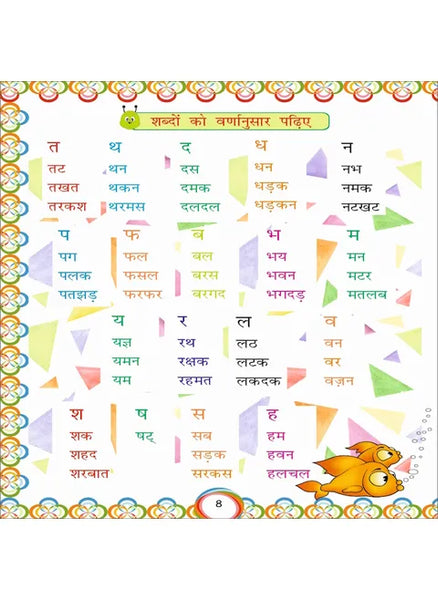 शब्दों को वर्णानुसार पढ़िए
त थ द ध न
तट थन दस धन नभ
तखत थकन दमक धड़क नमक
तरकश थरमस दलदल धड़कन नटखट
प फ ब भ म
पग फल बल भय मन
पलक फसल बरस भवन मटर
पतझड़ फरफर बरगद भगदड़ मतलब
य र ल व
यज्ञ रथ लठ वन
यमन रक्षक लटक वर
यम रहमत लकदक वज़न
श ष स ह
शक षट् सब हम
शहद सड़क हवन
शरबात सरकस हलचल
8